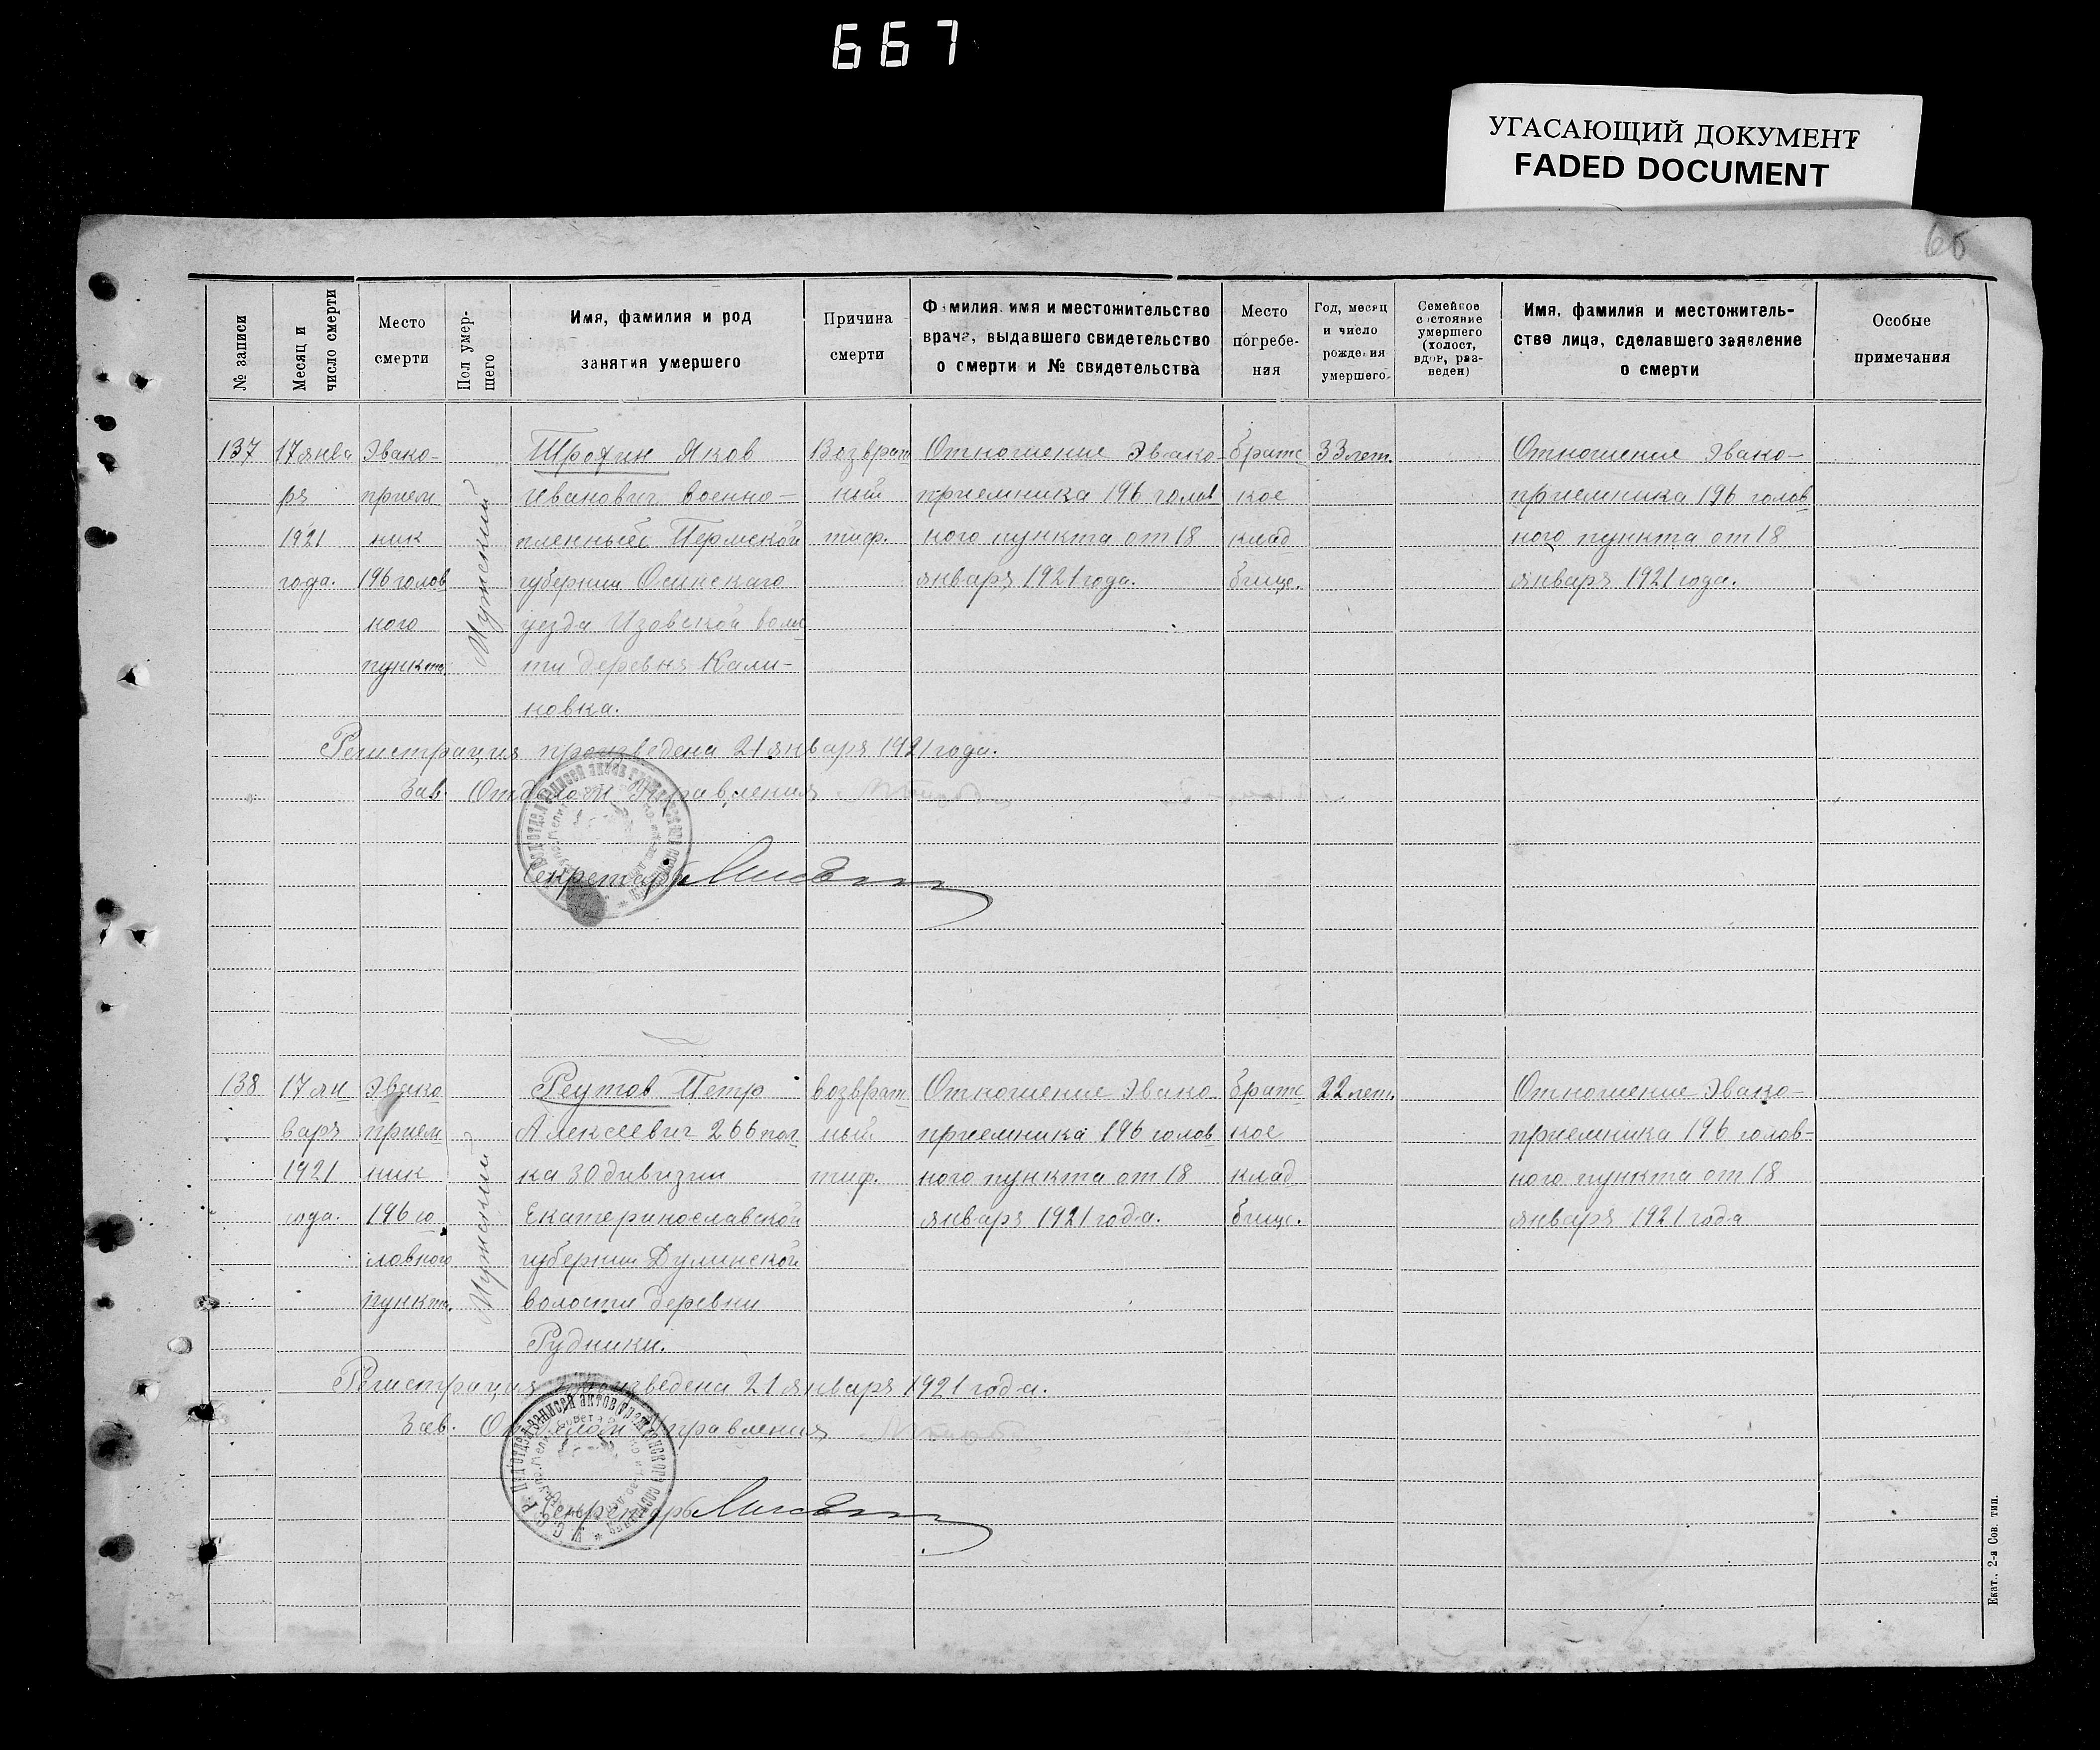 667
УГАСАЮЩИЙ ДОКУМЕНТ
FADED DOCUMENT
№ записи
Месяц и число смерти
Место смерти
Пол умер-
шего
Имя, фамилия и род
занятия умершего
Причина
смерти
Фамилия имя и местожительство
врача, выдавшего свидетельство
о смерти и № свидетельства
Место
погребе-
ния
Год, месяц
и число
рождения
умершего.
Семейное
состояние
умершего
(холост,
вдов, раз-
веден)
Имя, фамилия и местожитель-
ства лица, сделавшего заявление
о смерти
Особые
примечания
137
17 янва
ря
1921
года.
Эвако-
прием
ник
196 голов
ного
пункта.
Мужский
Яков
Иванович военно-
пленный Пермской
губернии Осинскаго
уезда Изовской волос
ти деревня Кали-
новка.
Возврат
ный
тиф.
Отношение Эвако-
приемника 196 голов
ного пункта от 18
января 1921 года.
братс
кое
клад
бище.
33 лет.
Отношение Эвако-
приемника 196 голов
ного пункта от 18
января 1921 года.
Регистрация произведена 21 января 1921 года.
Зав. Отделом Управления
Секретарь
138
17 ян
варя
1921
года.
Эвако
прием
ник
196 го
ловного
пункт.
Мужский
Реутов Петр
Алексеевич 266 пол
ка 30 дивизии
Екатеринославской
губернии Дулинской
волости деревни
Рудники.
возврат
ный
тиф.
Отношение Эвако
приемника 196 голов
ного пункта от 18
января 1921 года.
братс
кое
клад
бище.
22 лет.
Отношение Эвако-
приемника 196 голов-
ного пункта от 18
января 1921 года
Регистрация произведена 21 января 1921 года.
Зав. Отделом Управления
Секретарь
Екат., 2-я Сов. тип.